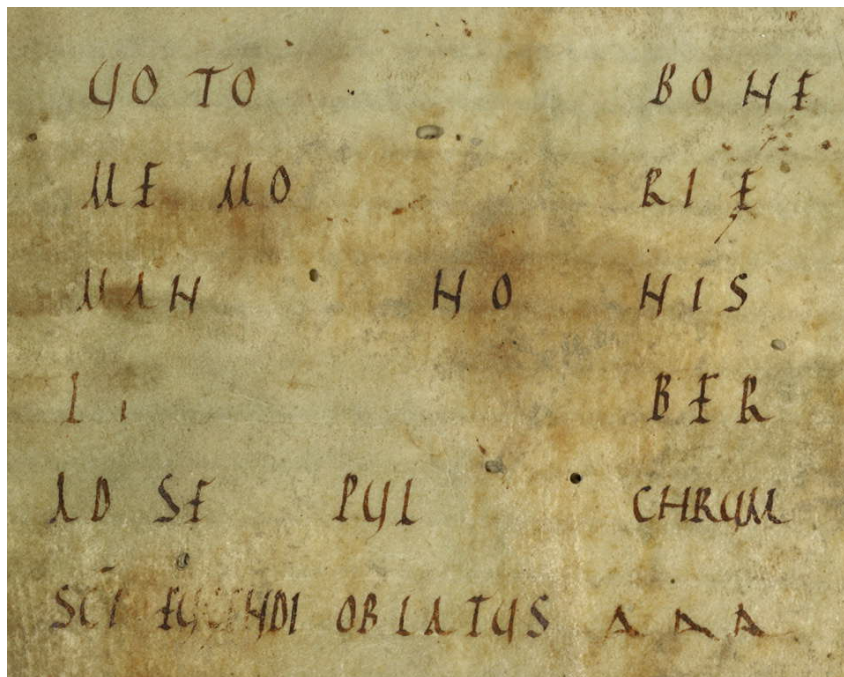 UO TO BO NE
ME MO RIE
MAN NO NIS
LI BER
AD SE PUL CHRUM
SCI EUGENDI OBLATUS A A A